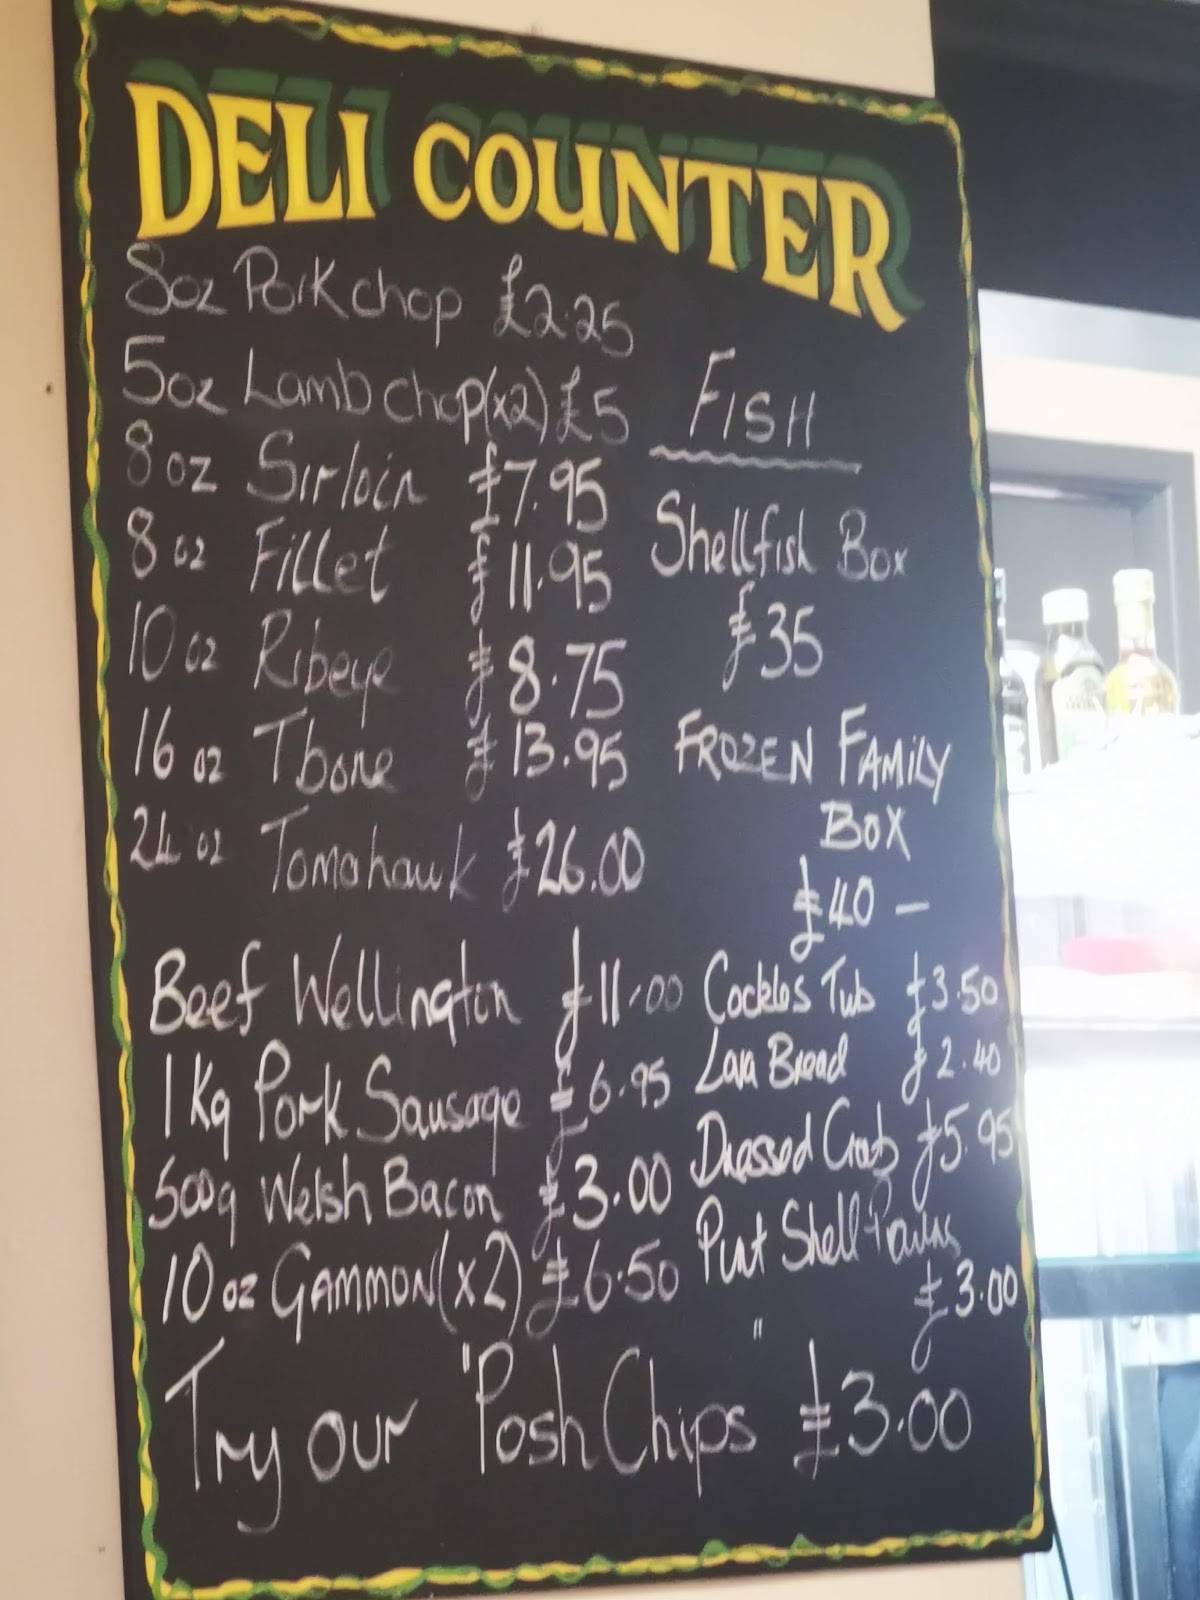 DELI COUNTER
8oz Pork chop £2.25
5oz Lamb chop (x2) £5
8oz Sirloin £7.95
8oz Fillet £11.95
10oz Ribeye £8.75
16oz Tbone £13.95
24oz Tomahawk £26.00
Beef Wellington £11.00
1Kg Pork Sausage £6.95
500g Welsh Bacon £3.00
10oz GAMMON (x2) £6.50
FISH
Shellfish Box
£35
FROZEN FAMILY
BOX
£40 —
Cockles Tub £3.50
Lava Bread £2.40
Dressed Crab £5.95
Pint Shell Prawns
£3.00
Try our "Posh Chips" £3.00